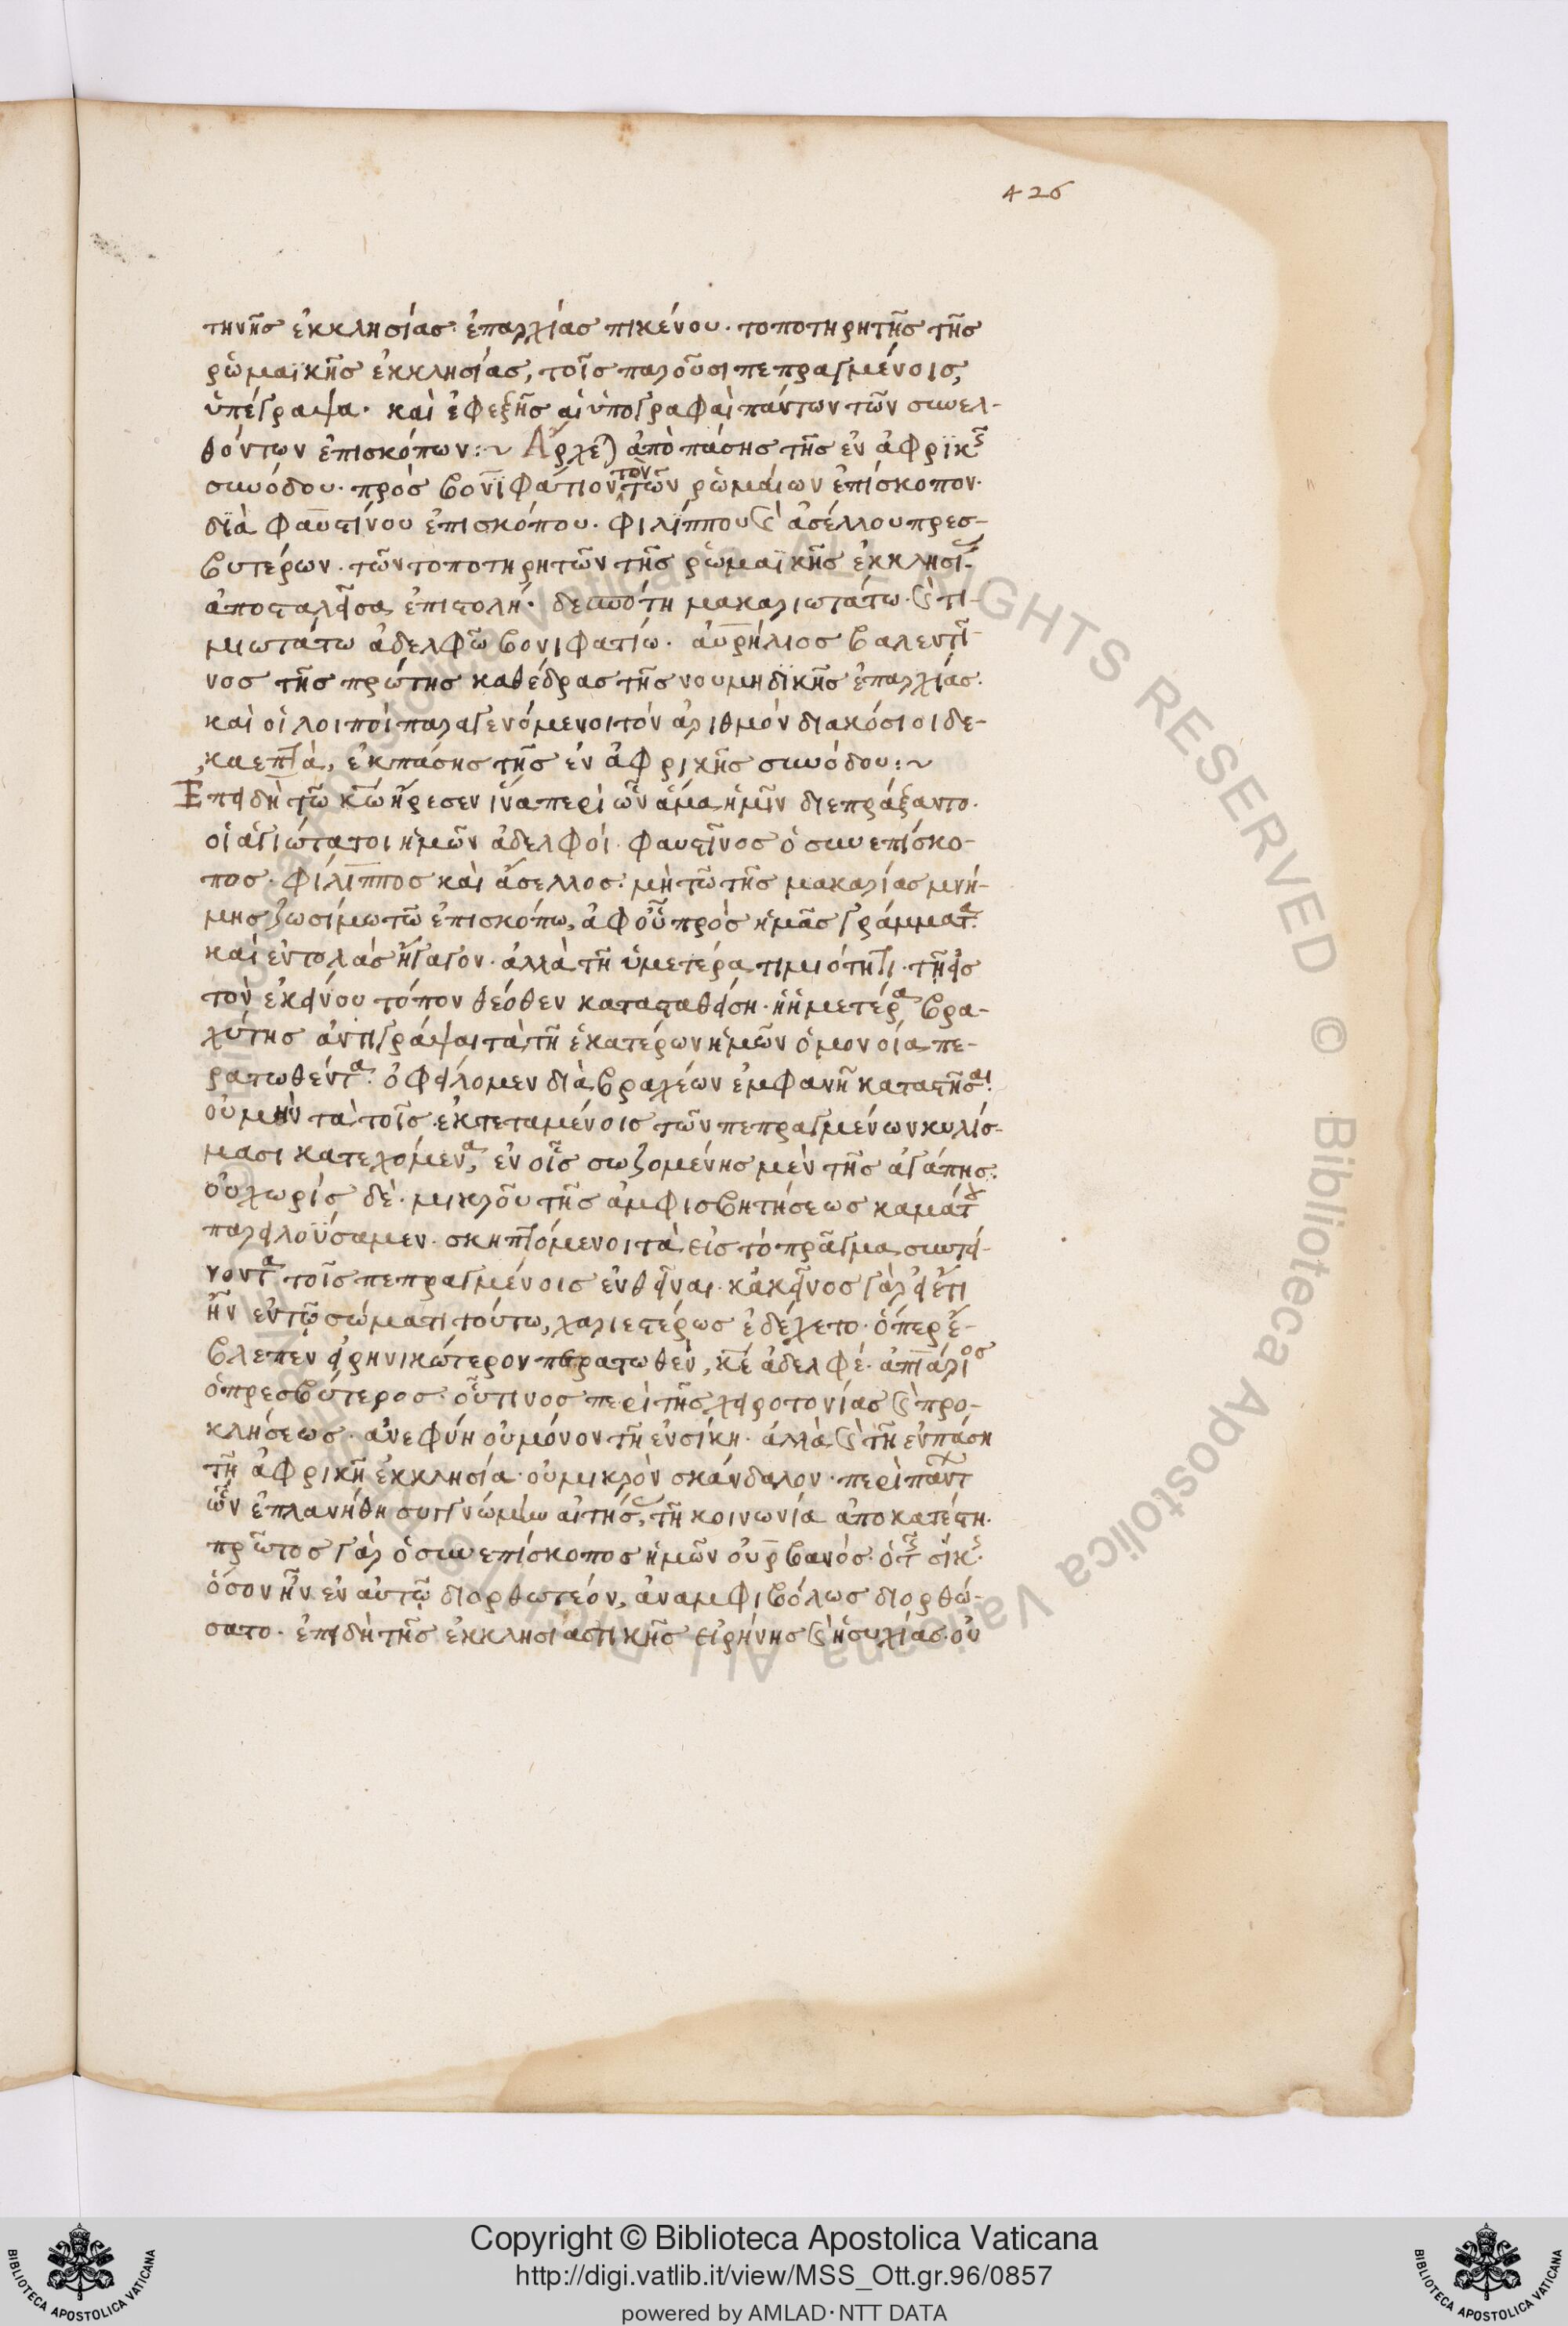 426
τηνῆς ἐκκλησίας ἐπαρχίας πικένου· τοποτηρητῆς τῆς
ρὡμαϊκῆς ἐκκλησίας, τοῖς παροῦσι πεπραγμένοις,
ὑπέγραψα· καὶ ἐφεξῆς αἱ ὑπογραφαὶ πάντων τῶν συνελ-
θόντων ἐπισκόπων:~ Ἄρχε) ἀπὸ πάσης τῆς ἐν ἀφρϊκ
συνόδου· πρὸς βονϊφάτιον τὸν τῶν ρὡμαίων ἐπίσκοπον·
δϊὰ φαυστίνου ἐπισκόπου· φιλίππου ϛ ἀσέλλου πρεσ-
βυτέρων· τῶν τοποτηρητῶν τῆς ρὡμαϊκῆς ἐκκλησί
ἀποσταλεῖσα ἐπιστολή· δεσπότη μακαριωτάτω· ϛ τι-
μιωτάτω ἀδελφῶ βονιφατίω· ἀυρήλιος βαλεντῖ-
νος τῆς πρώτης καθέδρας τῆς νουμηδϊκῆς ἐπαρχίας·
καὶ οἱ λοιποὶ παραγενόμενοι τὸν ἀριθμὸν διακόσιοι δε-
καεπτὰ, ἐκ πάσης τῆς ἐν ἀφρικῆς συνόδου:~
Ἐπειδὴ τῶ κῶ ἤρεσεν ἵνα περὶ ὧν ἅμα ἡμῖν διεπράξαντο·
οἱ ἁγιώτατοι ἡμῶν ἀδελφοί· φαυστῖνος ὁ συνεπίσκο-
πος· φίλιππος καὶ ἄσελλος· μὴ τῶ τῆς μακαρίας μνή-
μης ζωσίμω τῶ ἐπισκόπω, ἀφοὗ πρὸς ἡμᾶς γράμματα
καὶ ἐντολὰς ἤγαγον· ἀλλὰ τῆ ὑμετέρα τιμιότητι· τῆ εἰς
τὸν ἐκείνου τόπον θεόθεν κατασταθείση· ἡ ἡμετέρα βρα-
χύτης ἀντιγράψαι τὰ τῆ ἑκατέρων ἡμῶν ὁμονοία πε-
ρατωθέντα· ὀφείλομεν διὰ βραχέων ἐμφανῆ καταστῆσαι
οὐ μὴν τὰ τοῖς ἐκτεταμένοις τῶν πεπραγμένων κυλίσ-
μασι κατεχόμενα, ἐν οἷς σωζομένης μὲν τῆς ἀγάπης·
οὐ χωρὶς δὲ· μικροῦ τῆς ἀμφισβητήσεως καμάτου
παρειλούσαμεν· σκηπτόμενοι τὰ εἰς τὸ πρᾶγμα συντεί-
νοντα τοῖς πεπραγμένοις ἐνθεῖναι· κἀκεῖνος γὰρ εἰ ἔτι
ἦν ἐν τῷ σώματι τούτω, χαριεστέρως ἐδέχετο· ὅπερ ἔ-
βλεπεν εἰρηνικώτερον περατωθὲν, κε ἀδελφέ· ἀπιάριος
ὁ πρεσβύτερος· οὗτινος περὶ τῆς χειροτονίας ϛ προ-
κλήσεως· ἀνεφύη οὐ μόνον τῆ ἐν σίκη· ἀλλὰ ϛ τῆ ἐν πάση
τῆ ἀφρικῆ ἐκκλησία· οὐ μικρὸν σκάνδαλον· περὶ πάντ
ὧν ἐπλανήθη συγγνώμην αἰτήσας, τῆ κοινωνία ἀποκατέστη·
πρῶτος γὰρ ὁ συνεπίσκοπος ἡμῶν οὐρβανός· ὁ τ σίκ
ὅσον ἦν ἐν αὐτῷ διορθωτέον, ἀναμφιβόλως διορθώ-
σατο· ἐπειδὴ τῆς ἐκκλησιαστικῆς εἰρήνης ϛ ἡσυχίας· οὐ
Copyright © Biblioteca Apostolica Vaticana
http://digi.vatlib.it/view/MSS_Ott.gr.96/0857
powered by AMLAD·NTT DATA